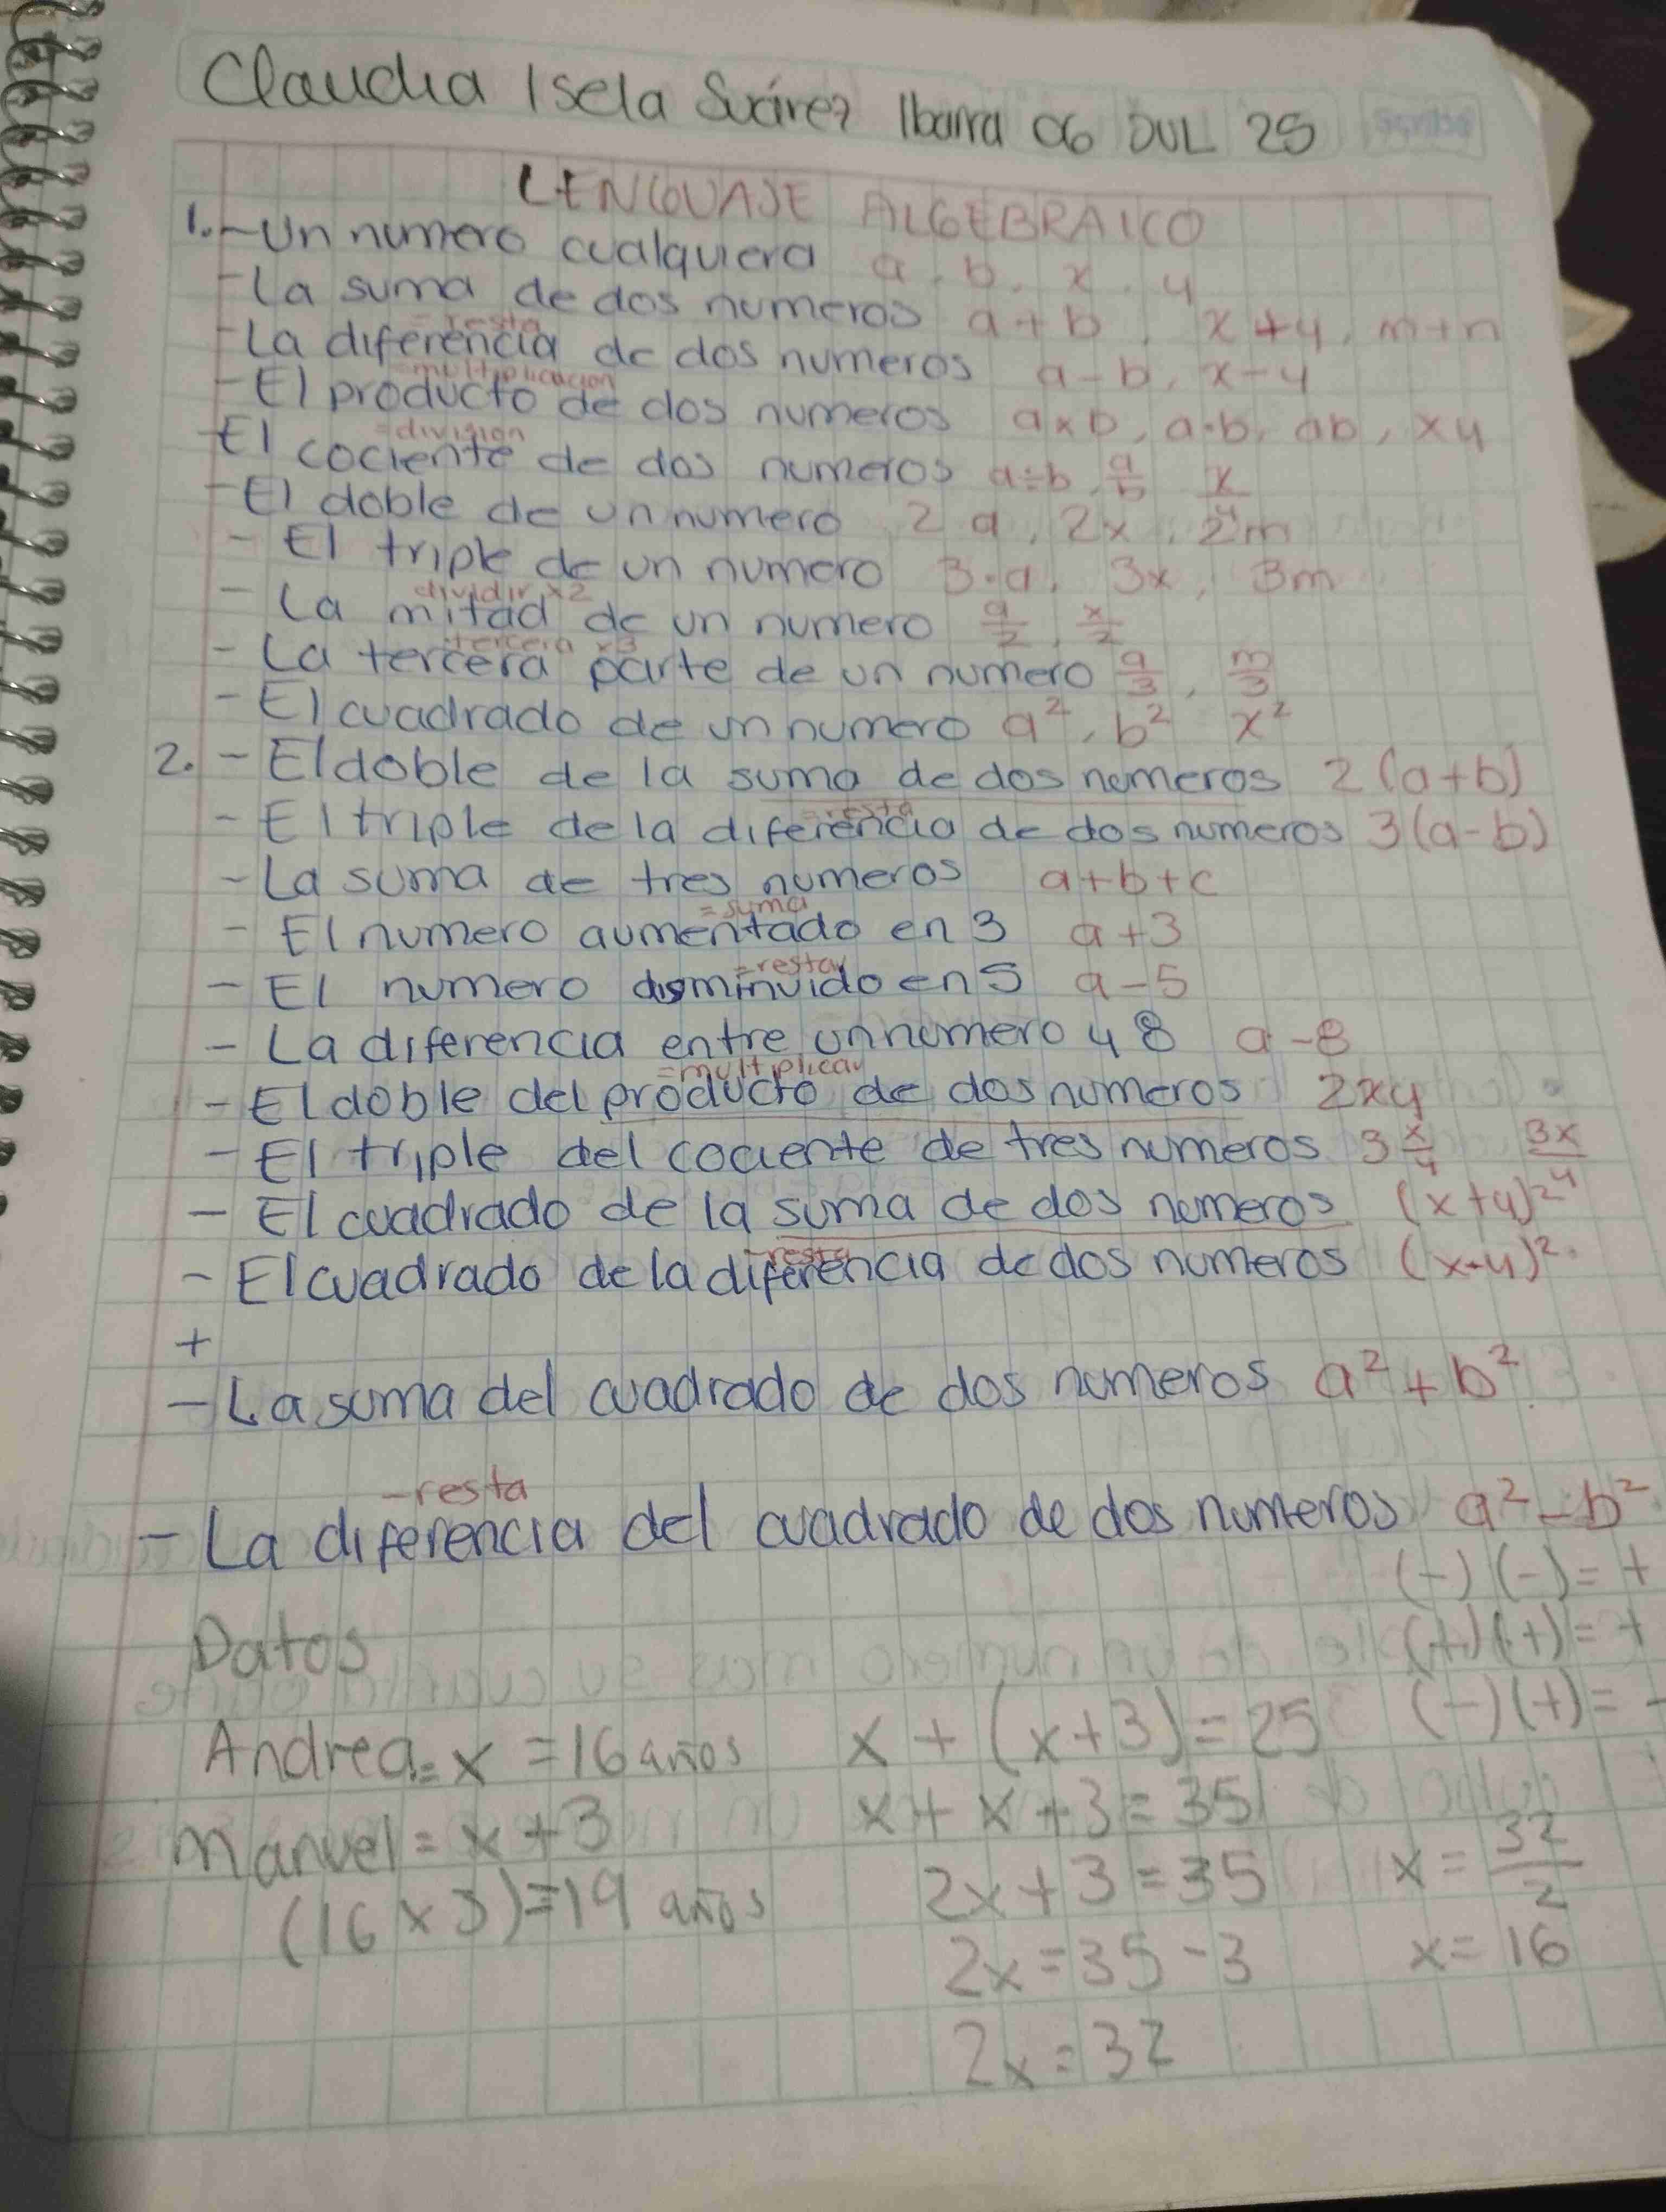 Claudia Isela Suárez Ibarra 06 JUL 25
Scribe
LENGUAJE ALGEBRAICO
1.- Un numero cualquiera a, b, x, y
- La suma de dos numeros a+b, x+y, m+n
= resta
- La diferencia de dos numeros a-b, x-y
=multiplicacion
- El producto de dos numeros axb, a·b, ab, xy
=division
- El cociente de dos numeros a÷b, a/b x/y
- El doble de un numero 2a, 2x, 2m
- El triple de un numero 3·a, 3x, 3m
dividir x2
- La mitad de un numero a/2, x/2
tercera x3
- La tercera parte de un numero a/3, m/3
- El cuadrado de un numero a², b² x²
2. - El doble de la suma de dos nomeros 2(a+b)
=resta
- El triple de la diferencia de dos numeros 3(a-b)
- La suma de tres numeros a+b+c
=suma
- El numero aumentado en 3 a+3
=restar
- El numero disminuido en 5 a-5
- La diferencia entre un nomero y 8 a-8
=multiplicar
- El doble del producto de dos numeros 2xy
- El triple del cociente de tres numeros 3 x/y 3x/y
- El cuadrado de la suma de dos nomeros (x+y)²
-resta
- El cuadrado de la diferencia de dos numeros (x-y)²
+
- La suma del cuadrado de dos nomeros a²+b²
-resta
- La diferencia del cuadrado de dos numeros a²-b²
(-)(-)=+
Datos (+)(+)=+
(-)(+)=-
Andrea= x =16 años x+(x+3)=25
Manuel= x+3 x+x+3=35
(16x3)=19 años 2x+3=35 x=32/2
2x=35-3 x=16
2x=32